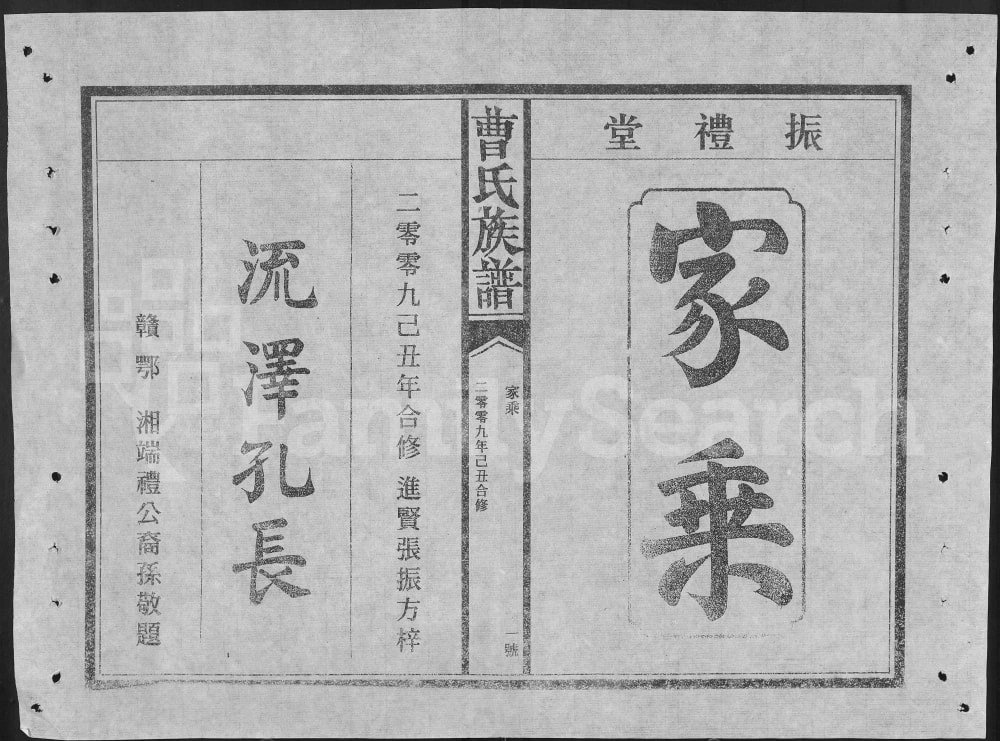 振禮堂
家乘
曹氏族譜
家乘
二零零九年己丑合修
一號
二零零九己丑年合修 進賢張振方梓
流澤孔長
贛鄂 湘端禮公裔孫敬題
FamilySearch